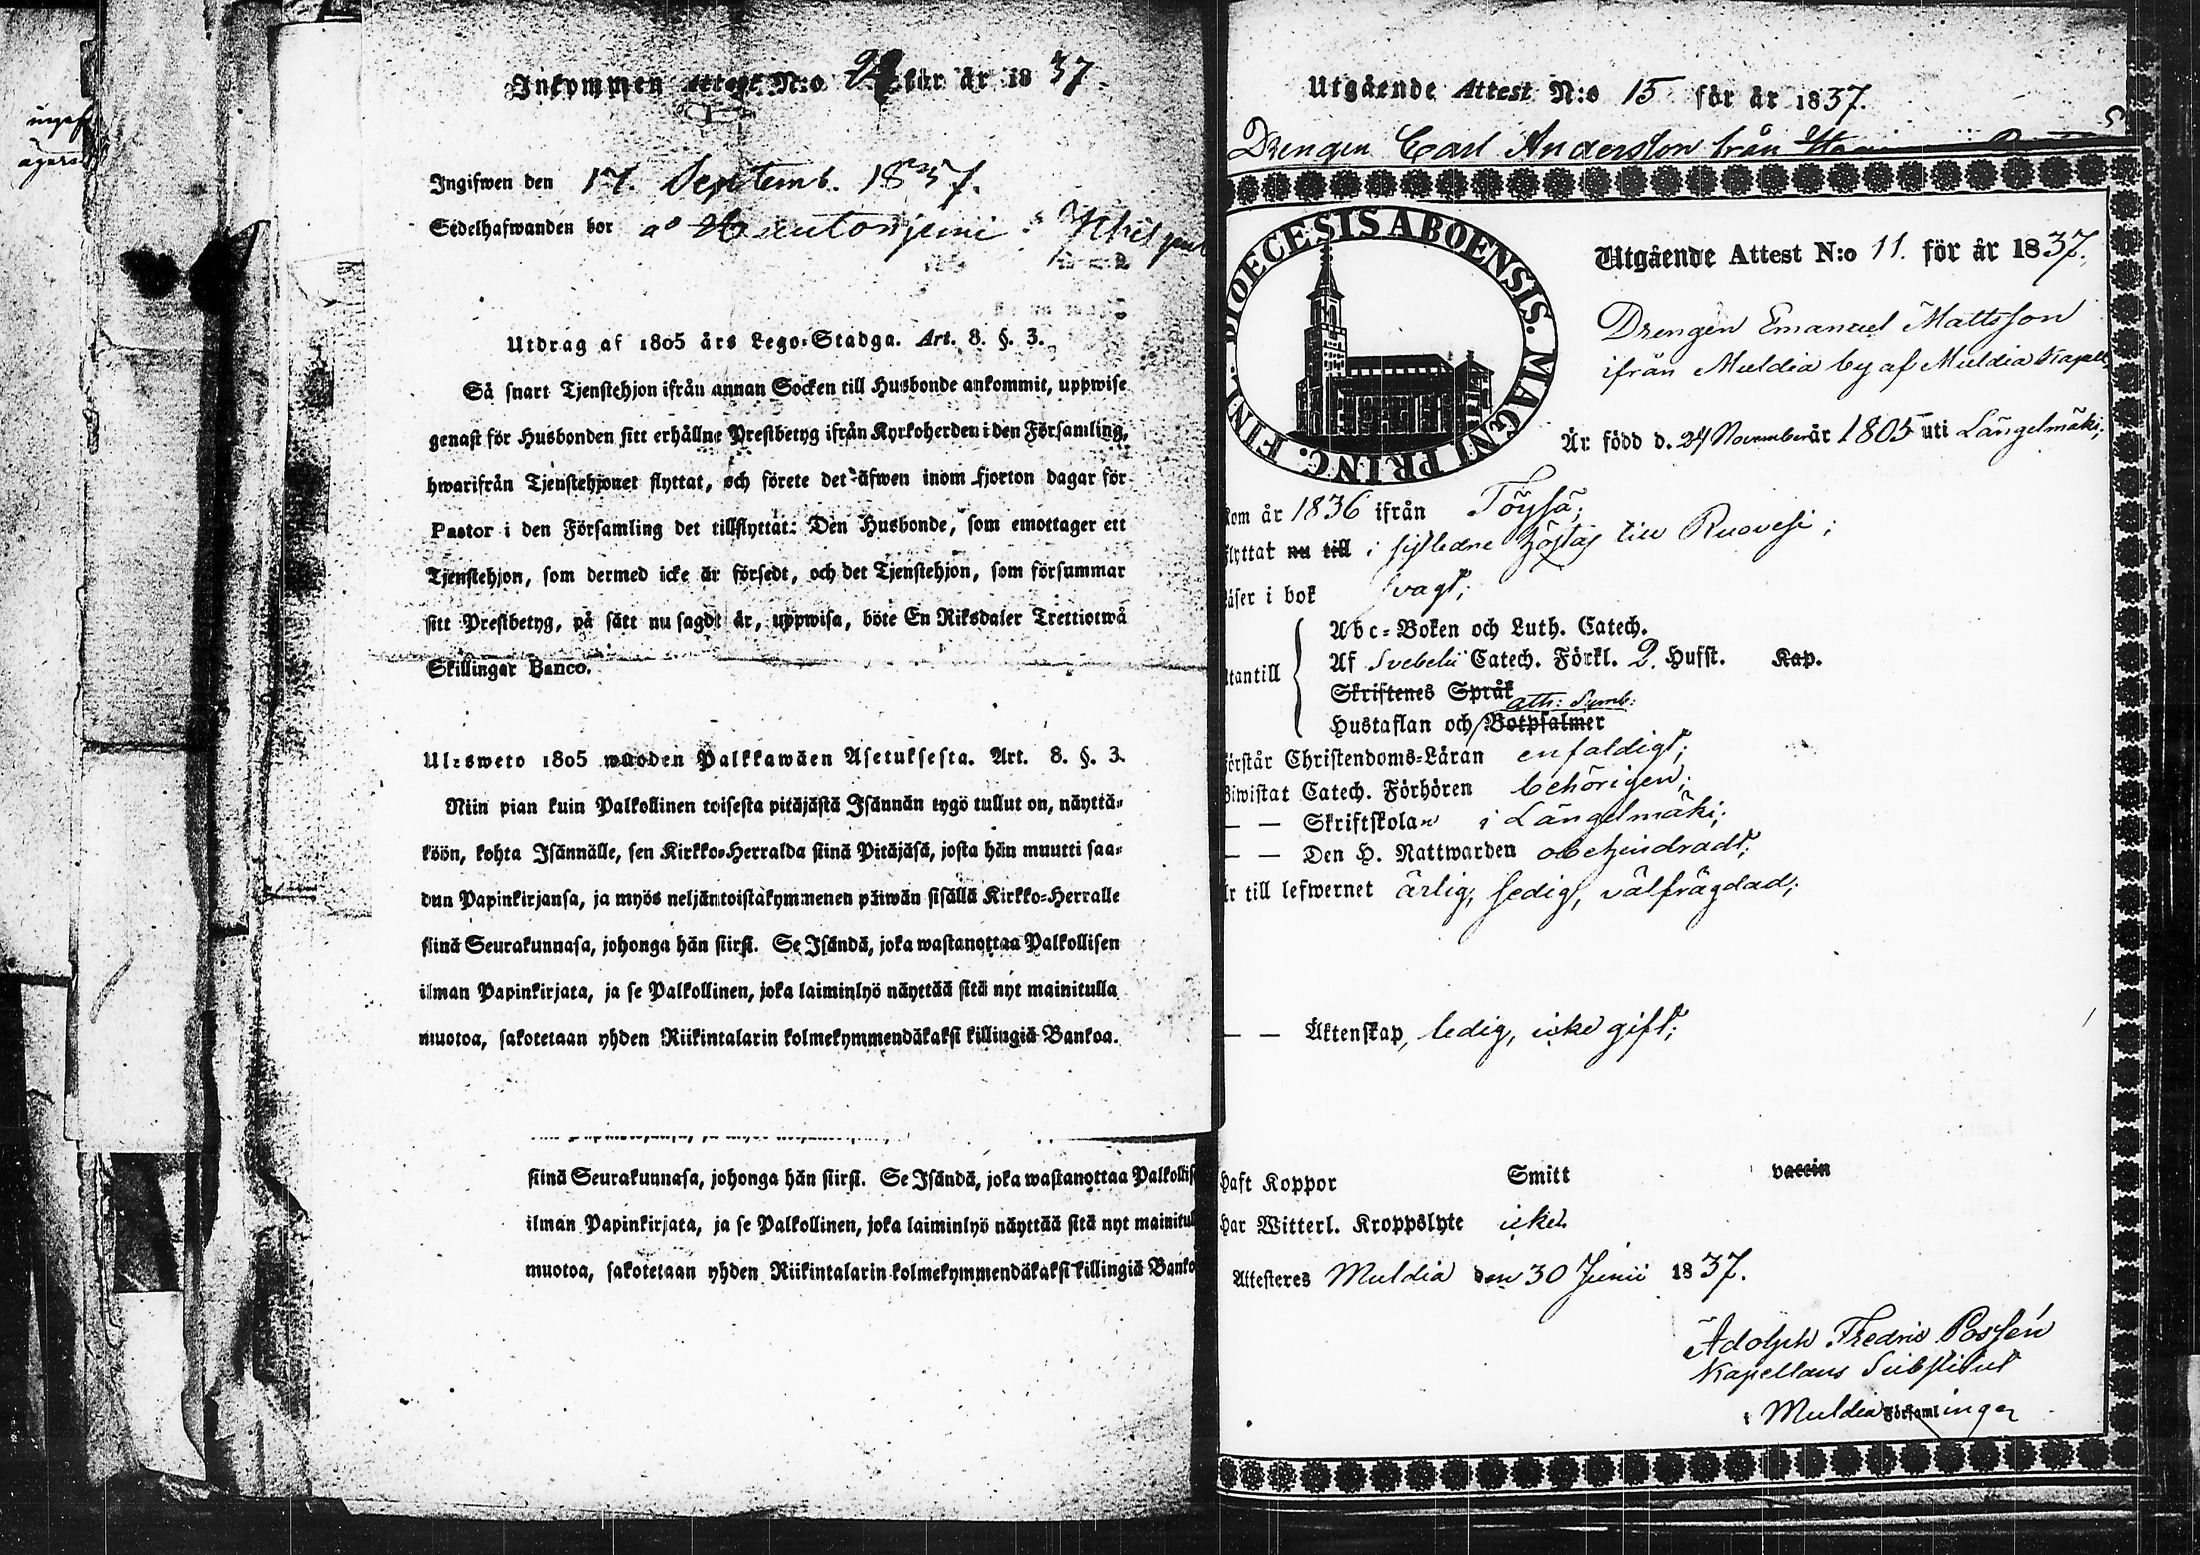 Inkommen Attest N:o för år 1837.
Ingifwen den 17. Septemb. 1837.
Sedelhafwanden bor
Utdrag af 1805 års Lego-Stadga. Art. 8. §. 3.
Så snart Tjenstehjon ifrån annan Socken till Husbonde ankommit, uppwise
genast för Husbonden sitt erhållne Prestbetyg ifrån Kyrkoherden i den Församling,
hwarifrån Tjenstehjonet flyttat, och förete det äfwen inom fjorton dagar för
Pastor i den Församling det tillflyttat: Den Husbonde, som emottager ett
Tjenstehjon, som dermed icke är försedt, och det Tjenstehjon, som försummar
sitt Prestbetyg, på sätt nu sagdt är, uppwisa, böte En Riksdaler Trettiotwå
Skillingar Banco.
Ulesweto 1805 wuoden Palkkawäen Asetuksesta. Art. 8. §. 3.
Niin pian kuin Palkollinen toisesta pitäjästä Isännän tygö tullut on, näyttä-
köön, kohta Isännälle, sen Kirkko-Herralda siinä Pitäjäsä, josta hän muutti saa-
dun Papinkirjansa, ja myös neljäntoistakymmenen päiwän sisällä Kirkko-Herralle
siinä Seurakunnasa, johonga hän siirsi. Se Isändä, joka wastanottaa Palkollisen
ilman Papinkirjata, ja se Palkollinen, joka laiminlyö näyttää sitä nyt mainitulla
muotoa, sakotetaan yhden Riikintalarin kolmekymmendäkaksi killingiä Bankoa.
siinä Seurakunnasa, johonga hän siirsi. Se Isändä, joka wastanottaa Palkollis
ilman Papinkirjata, ja se Palkollinen, joka laiminlyö näyttää sitä nyt mainitul
muotoa, sakotetaan yhden Riikintalarin kolmekymmendäkaksi killingiä Banko
Utgående Attest N:o 15 för år 1837.
Drengen Carl Andersson från
DIOECESIS ABOENSIS. MAGNI PRINC. FINL.
Utgående Attest N:o 11. för år 1837.
Drengen Emanuel Mattsson
ifrån Muldia by af Muldia Kapell,
Är född d. 24 November år 1805 uti Längelmäki;
kom år 1836 ifrån Töysä;
flyttat nu till i sistledne höstas till Ruovesi;
läser i bok svagt;
Utantill
Abc-Boken och Luth. Catech.
Af Svebelii Catech. Förkl. 2. Hufst. Kap.
Skriftenes Språk
ath: Symb:
Hustaflan och Botpsalmer
örstår Christendoms-Läran enfaldigt;
Biwistat Catech. Förhören behörigen;
— — Skriftskolan i Längelmäki;
— — Den H. Nattwarden obehindradt;
Är till lefwernet ärlig, sedig, välfrägdad;
— — Äktenskap, ledig, icke gift;
haft Koppor Smitt vaccin
har Witterl. Kroppslyte icke.
Attesteres Muldia den 30 Junii 1837.
Adolph Fredric Possén
Kapellans Substitut
i Muldia Församlingar